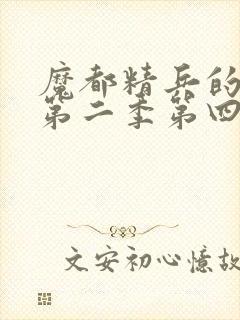 魔都精兵的
第二季第四
文安初心憶故